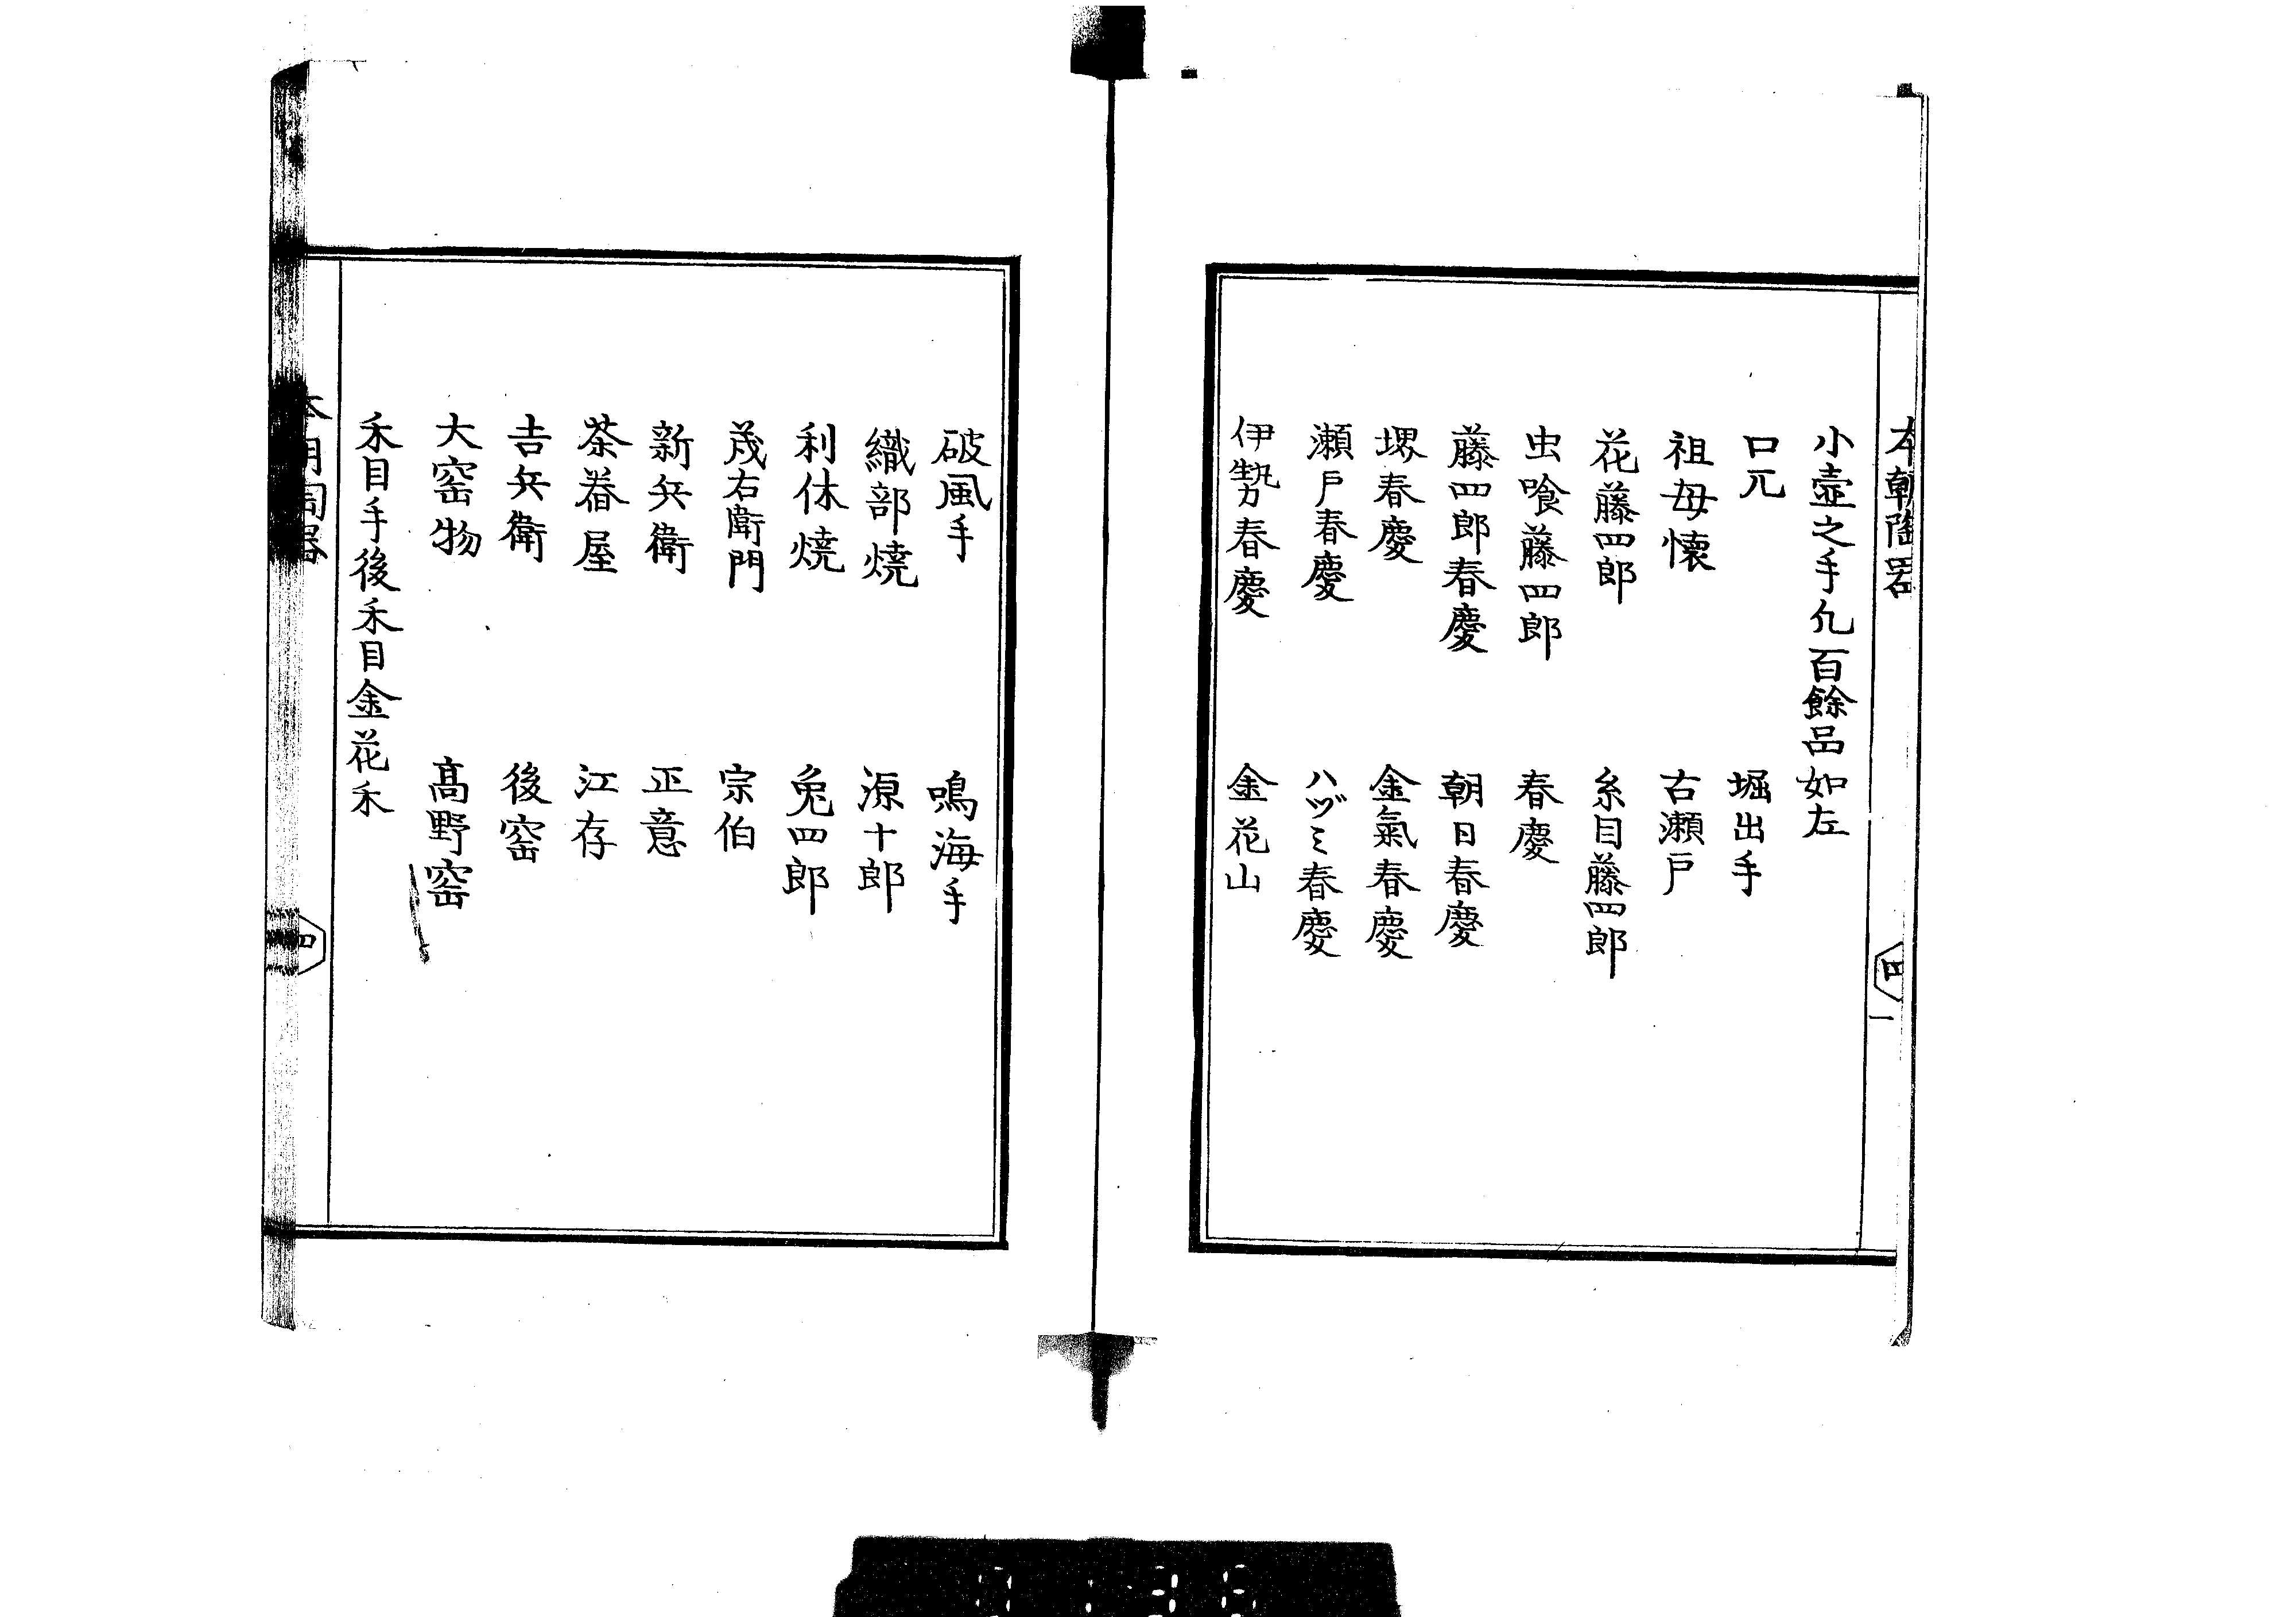 本朝陶器
四
一
小壺之手凢百餘品如左
口兀　堀出手
祖母懐　古瀬戸
花藤四郎　糸目藤四郎
虫喰藤四郎　春慶
藤四郎春慶　朝日春慶
堺春慶　金氣春慶
瀬戸春慶　ハヅミ春慶
伊勢春慶　金花山
破風手　鳴海手
織部焼　源十郎
利休焼　兔四郎
茂右衛門　宗伯
新兵衛　正意
茶碁屋　江存
吉兵衛　後窑
大窑物　髙野窑
禾目手後禾目金花禾
本朝陶器
四